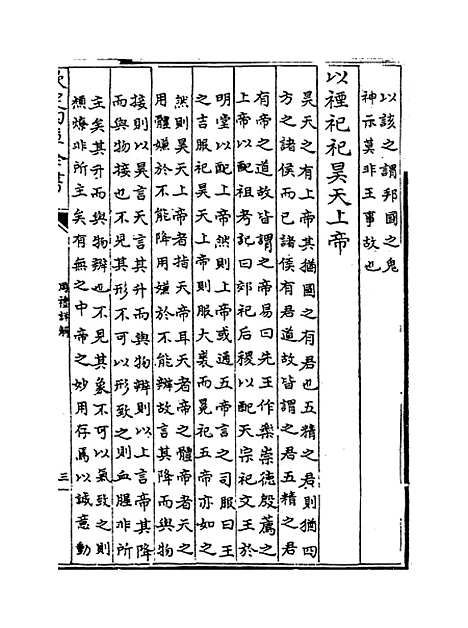 以該之謂邦國之鬼
神示莫非王事故也
以禋祀祀昊天上帝
昊天之有上帝其猶國之有君也五精之君則猶四
方之諸侯而已諸侯有君道故皆謂之君五精之君
有帝之道故皆謂之帝易曰先王作樂崇德殷薦之
上帝以配祖考記曰郊祀后稷以配天宗祀文王於
明堂以配上帝然則上帝或通五帝言之司服曰王
之吉服祀昊天上帝則服大裘而冕祀五帝亦如之
然則昊天上帝者指天帝耳天者帝之體帝者天之
用體嫌於不能降用嫌於不能辨故言其降而與物
接則以昊言天言其升而與物辨則以上言帝其降
而與物接也不見其形不可以形致之則血腥非所
主矣其升而與物辨也不見其象不可以氣致之則
槱燎非所主矣有無之中帝之妙用存焉以誠意動
欽定四庫全書
周禮詳解
三